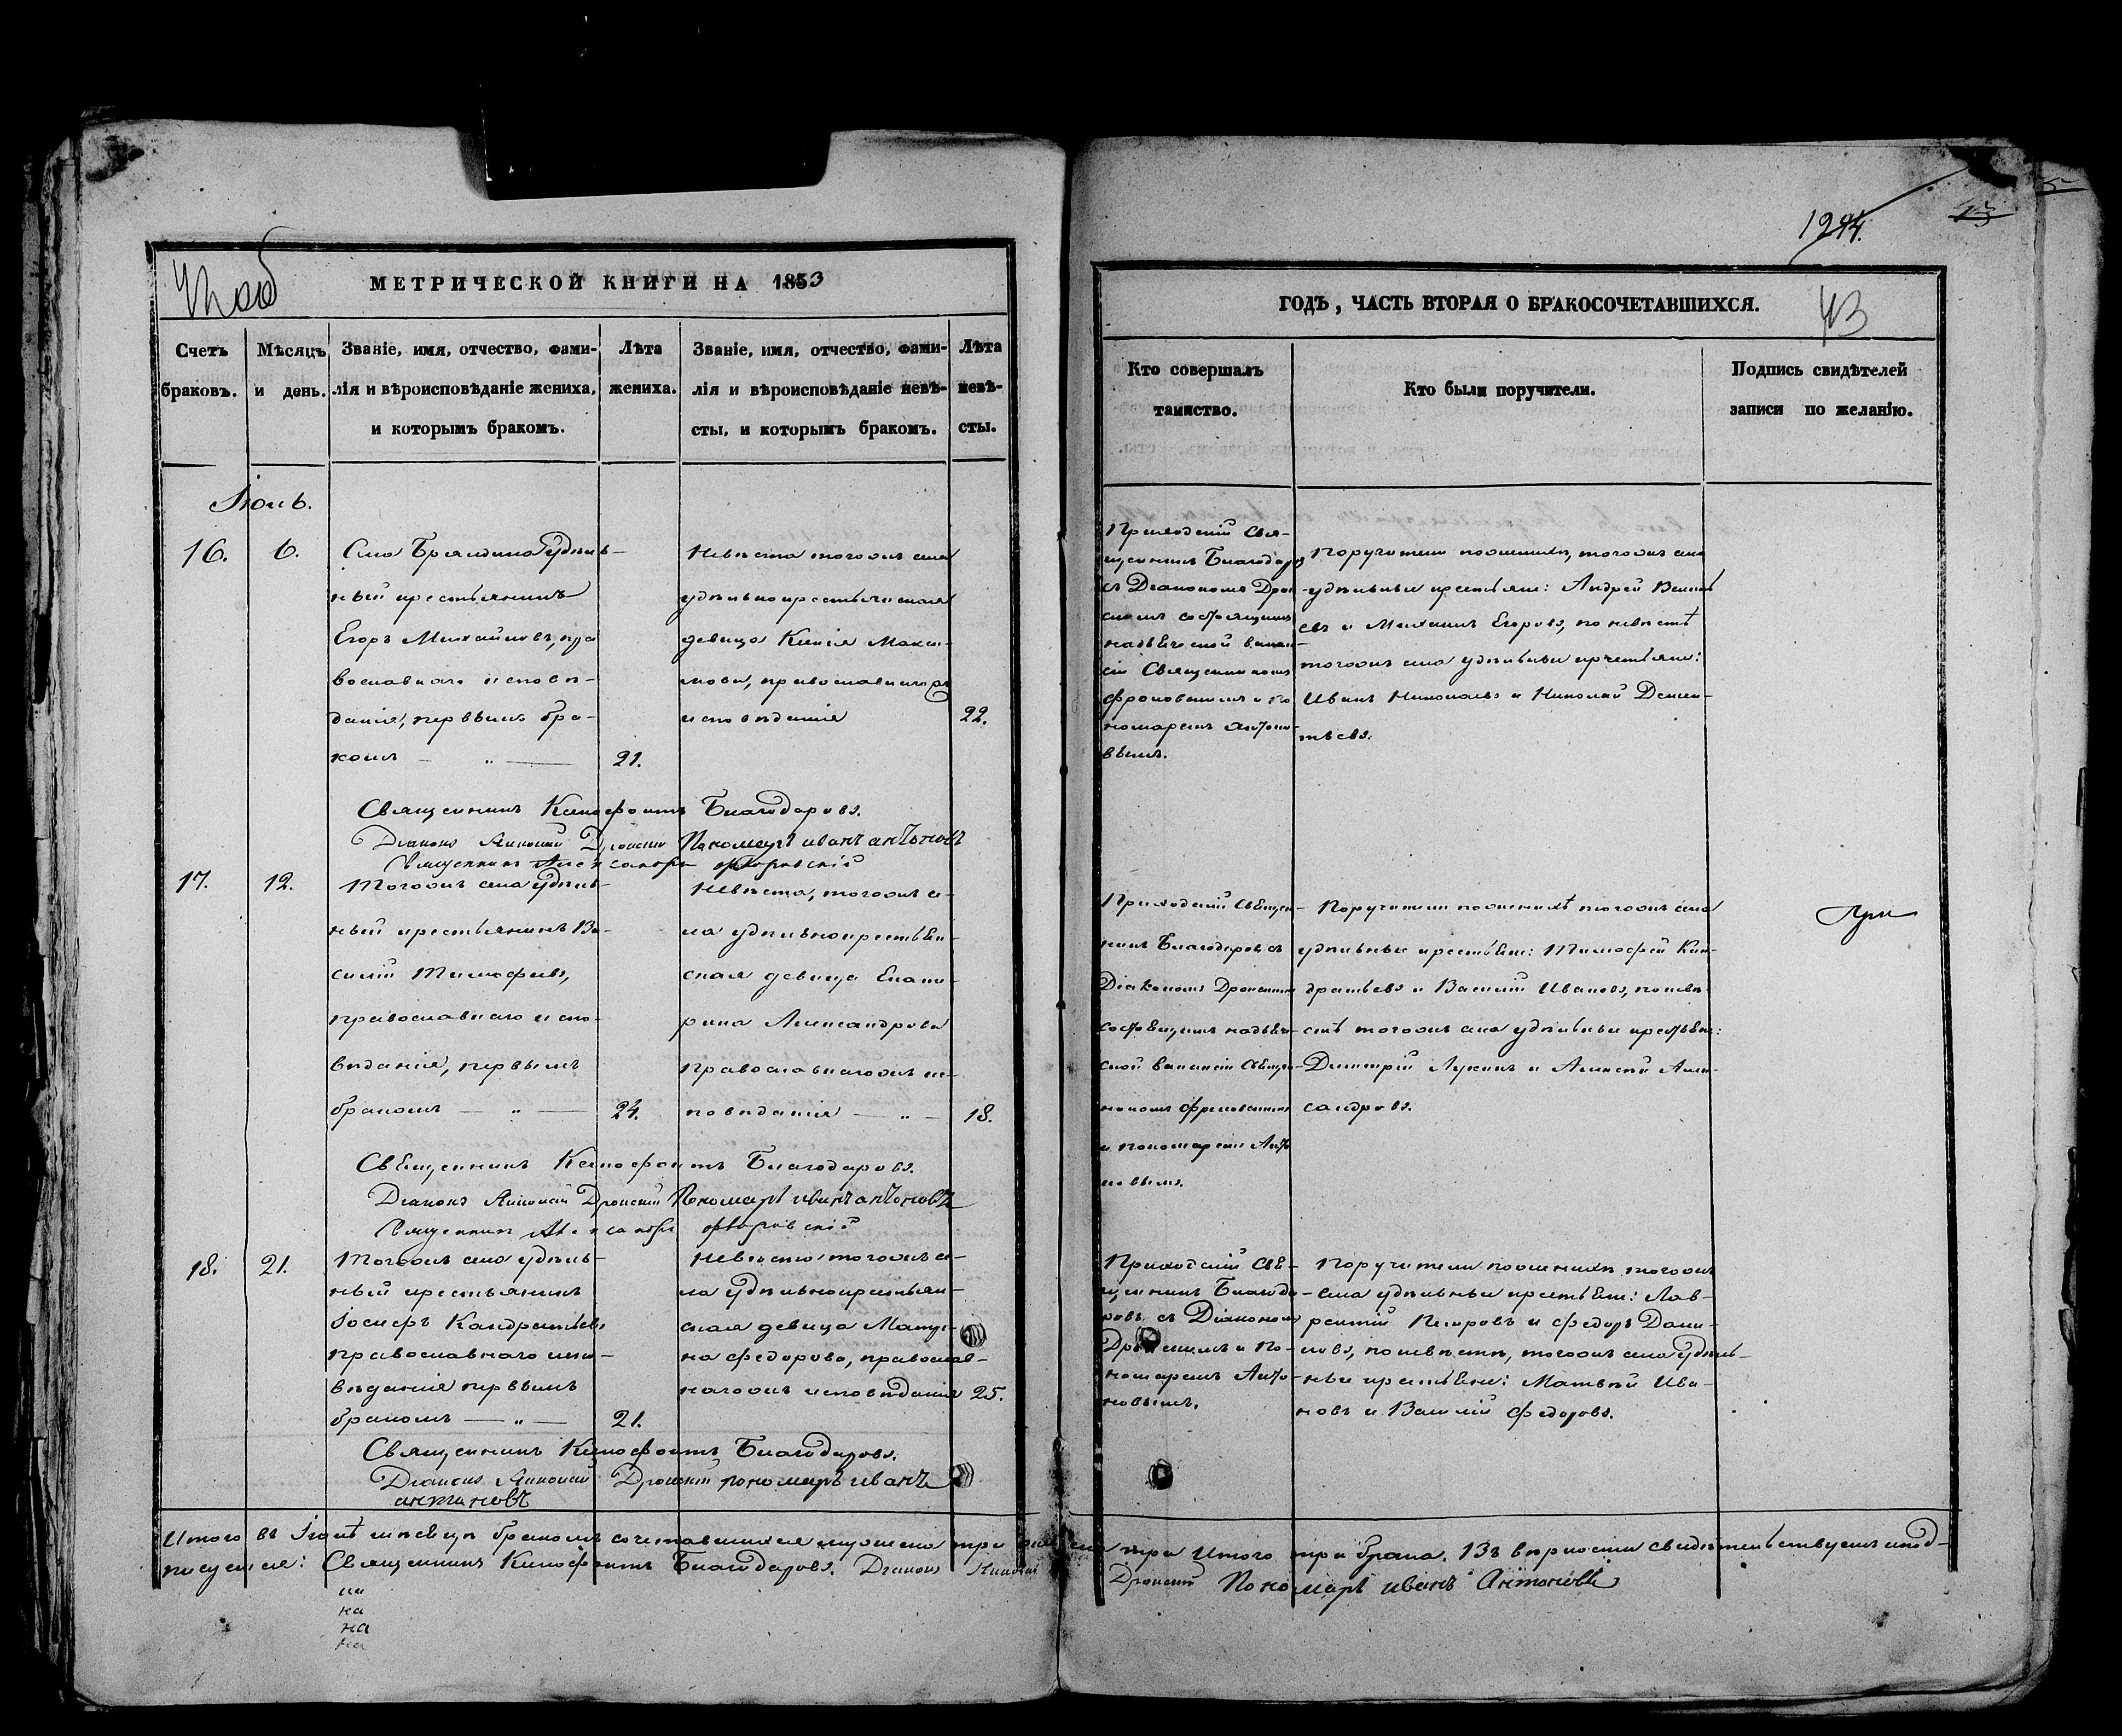 МЕТРИЧЕСКОЙ КНИГИ НА 1853
Счетъ браковъ.
Мѣсяцъ и день.
Званіе, имя, отчество, фами-
лія и вѣроисповѣданіе жениха,
и которымъ бракомъ.
Лѣта жениха.
Званіе, имя, отчество, фами-
лія и вѣроисповѣданіе невѣ-
сты, и которымъ бракомъ.
Лѣта невѣ-
сты.
Іюнь.
16. 6.
Села удѣль-
ный крестьянинъ
Егоръ Михайловъ, пра-
вославнаго исповѣ-
данія, первымъ бра-
комъ — „ — 21.
Невѣста тогожъ села
удѣльнокрестьянская
девица Макси-
мова, православнаго
исповѣданія 22.
Священникъ Ксенофонтъ Благодаровъ.
Діаконъ Николай Дронскій Пономарь иванъ антоновъ
Священникъ Александръ
17. 12.
Тогожъ села удѣль-
ный крестьянинъ Ва-
силій Тимофеевъ,
православнаго испо-
вѣданія, первымъ
бракомъ — „ — 24.
Невѣста, тогожъ се-
ла удѣльнокрестьян-
ская девица Екате-
рина Александрова
православнагожъ ис-
повѣданія — „ — 18.
Священникъ Ксенофонтъ Благодаровъ.
Діаконъ Николай Дронскій Пономарь иванъ антоновъ
Священникъ Александръ
18. 21.
Тогожъ села удѣль-
ный крестьянинъ
Іосифъ Кандратьевъ
православнаго испо-
вѣданія первымъ
бракомъ — „ — 21.
Невѣста тогожъ се-
ла удѣльнокрестьян-
ская девица Матре-
на федорова, православ-
нагожъ исповѣданія 25.
Священникъ Ксенофонтъ Благодаровъ.
Діаконъ Николай Дронскій пономарь иванъ
антоновъ
Итого въ Іюнѣ мѣсяцѣ бракомъ сочетавшихся мужеска три
писуемся: Священникъ Ксенофонтъ Благодаровъ. Діаконъ Николай
на
на
на
1294.
13
ГОДЪ, ЧАСТЬ ВТОРАЯ О БРАКОСОЧЕТАВШИХСЯ.
43
Кто совершалъ
таинство.
Кто были поручители.
Подпись свидѣтелей
записи по желанію.
Приходскій Свя-
щенникъ Благодаровъ
съ Діакономъ Дрон-
скимъ
Священникомъ
и по-
номаремъ Антоно-
вымъ.
Поручители по женихѣ, тогожъ села
удѣльные крестьяне: Андрей
и Михаилъ Егоровъ, по невѣстѣ
тогожъ села удѣльные крестьяне:
Иванъ и Николай Демен-
тьевъ.
Приходскій Священ-
никъ Благодаровъ съ
Діакономъ Дронскимъ
и пономаремъ Анто-
новымъ.
Поручители по женихѣ тогожъ села
удѣльные крестьяне: Тимофей Кан-
дратьевъ и Василій Ивановъ, по невѣ-
стѣ тогожъ села удѣльные крестьяне:
Дмитрій Лукинъ и Алексѣй Алек-
сандровъ.
Приходскій Свя-
щенникъ Благода-
ровъ съ Діакономъ
Дронскимъ и По-
номаремъ Анто-
новымъ.
Поручители по женихѣ тогожъ
села удѣльные крестьяне: Лав-
рентій Петровъ и федоръ Дани-
ловъ, по невѣстѣ, тогожъ села удѣль-
ные крестьяне: Матвѣй Ива-
новъ и Василій федоровъ.
три Итого три брака. Въ вѣрности свидѣтельствуемъ и под-
Дронскій Пономарь иванъ Антоновъ